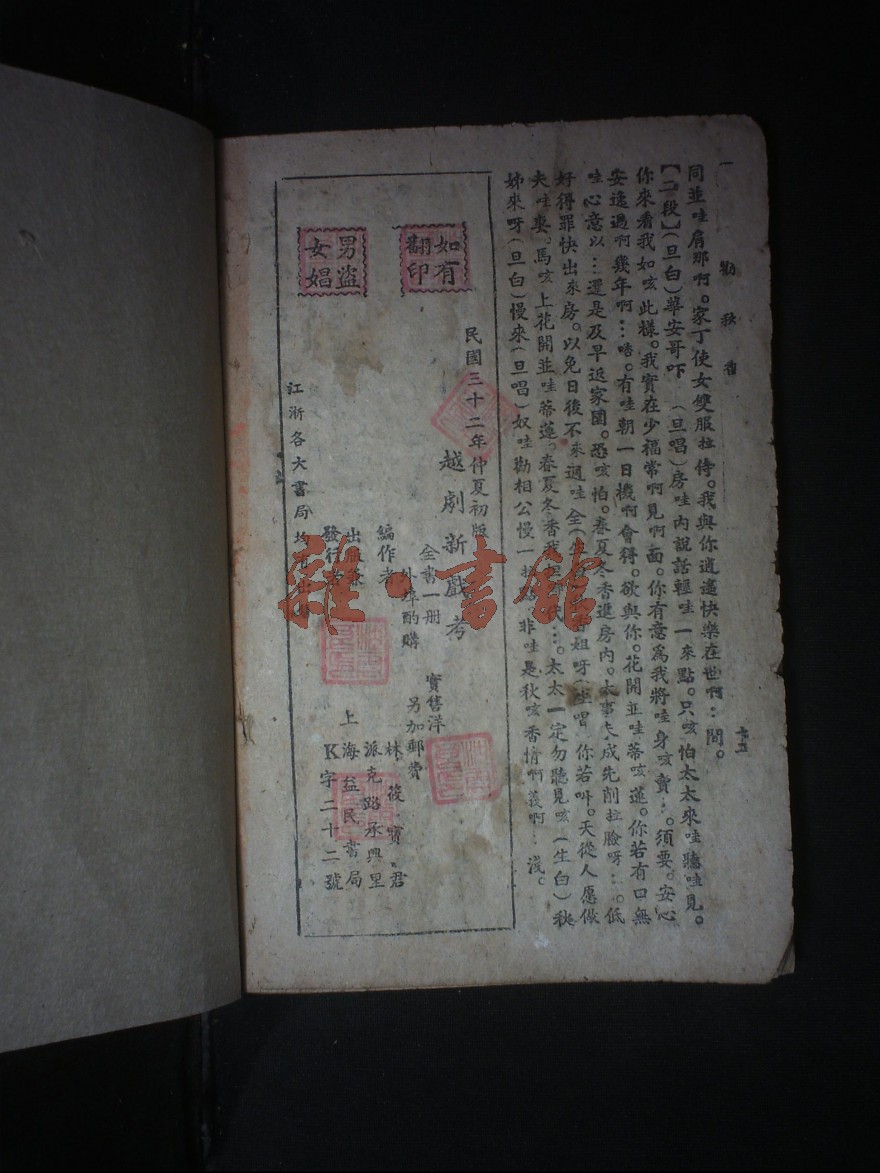 勸秋香
同並哇肩那啊。家丁使女雙服拉侍。我與你逍遙快樂在世啊…間。
【二段】(旦白)華安哥吓 (旦唱)房哇內說話輕哇一來點。只咳怕太太來哇聽哇見。
你來看我如咳此樣。我實在少福常啊見啊面。你有意為我將哇身咳賣…。須要。安心
安逸過啊幾年啊…唔。有哇朝一日機啊會得。欲與你。花開並哇蒂咳蓮。你若有口無
哇心意以…還是及早返家園。恐咳怕。春夏冬香進房內。大事未成先削拉臉呀…。低
好得罪快出來房。以免日後不來過哇全(生 姐呀(生唱 你若叫。天從人愿做
夫哇妻。馬咳上花開並哇蒂蓮。春夏冬香我 …。太太一定勿聽見咳(生白)秋
姊來呀(旦白)慢來(旦唱)奴哇勸相公慢一 非哇是秋咳香情啊義啊…淺。
如有翻印
男盜女娼
民國三十二年仲夏初版
越劇新戲考
全書一冊 實售洋
外埠酌購 另加郵費
編作者 林筱寶君
派克路承興里
出版兼 上海益民書局
發行者 K字二十二號
江浙各大書局均有出售
雜·書館